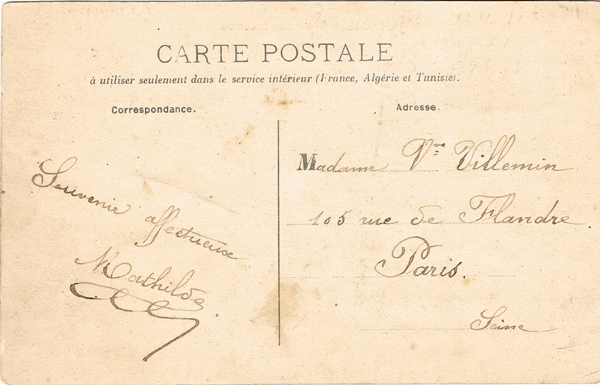 CARTE POSTALE
à utiliser seulement dans le service intérieur (France, Algérie et Tunisie).
Correspondance.
Adresse
Souvenir affectueux
Mathilde
Madame Vve Villemin
105 rue de Flandre.
Paris.
Seine